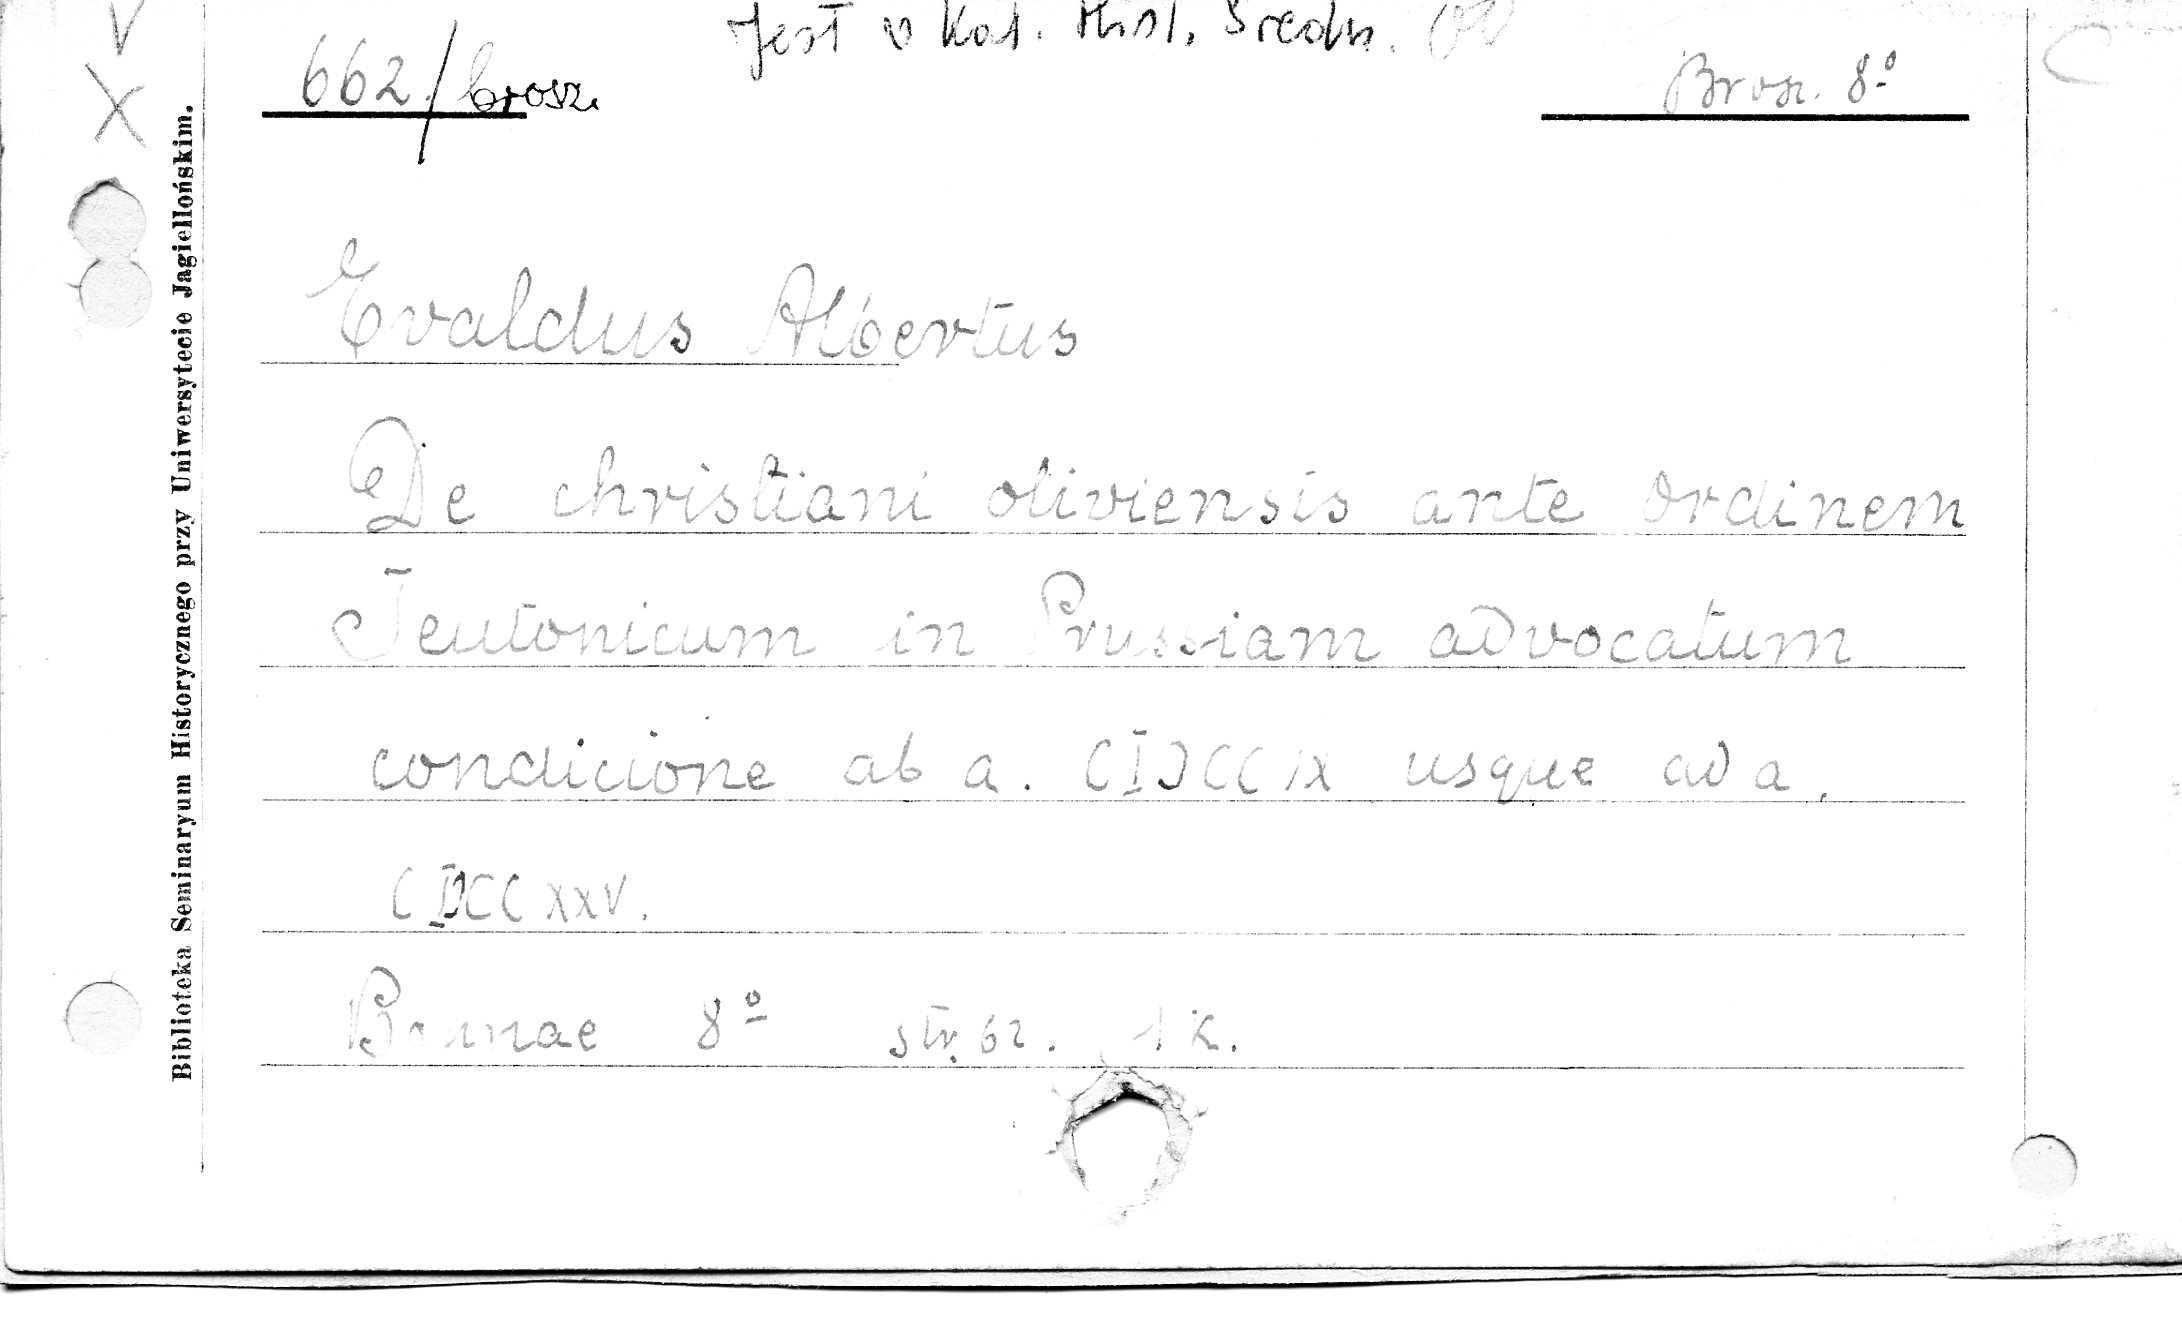 Jest w Kat. Hist. Średn.
662./brosz.
Brosz. 8º
Evaldus Albertus
De christiani oliviensis ante Ordinem
Teutonicum in Prussiam advocatum
condicione ab a. CIƆCCIX usque ad a.
CIƆCCXXV.
Bonnae 8º str. 62. 1 K.
Biblioteka Seminaryum Historycznego przy Uniwersytecie Jagiellońskim.